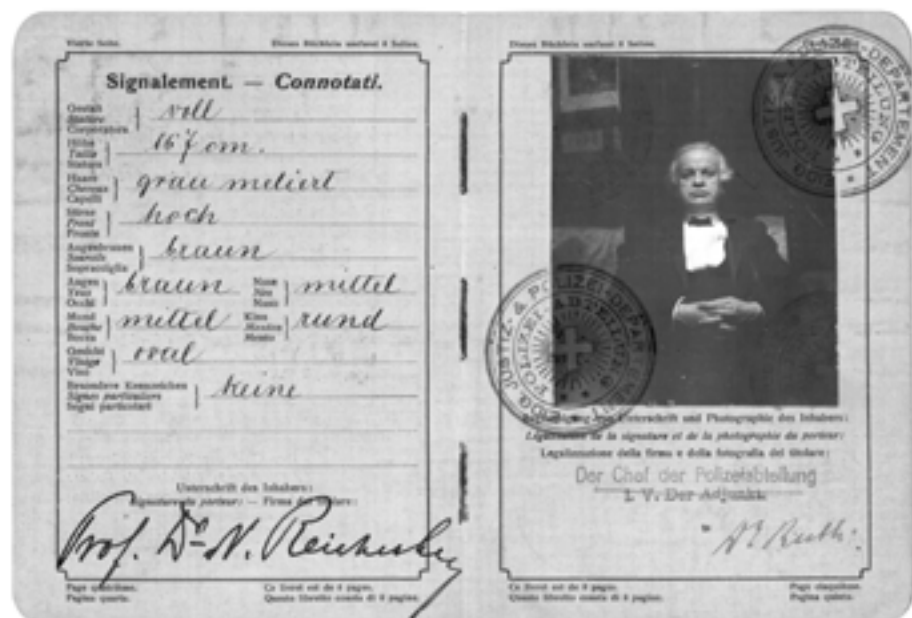 Vierte Seite. Dieses Büchlein umfasst 8 Seiten.
Signalement. — Connotati.
Gestalt
Stature
Corporatura
voll
Höhe
Taille
Statura
167 cm.
Haare
Cheveux
Capelli
grau meliert
Stirne
Front
Fronte
hoch
Augenbrauen
Sourcils
Sopracciglia
braun
Augen
Yeux
Occhi
braun
Nase
Nez
Naso
mittel
Mund
Bouche
Bocca
mittel
Kinn
Menton
Mento
rund
Gesicht
Visage
Viso
oval
Besondere Kennzeichen
Signes particuliers
Segni particolari
keine
Unterschrift des Inhabers:
Signature du porteur: — Firma del titolare:
Prof. Dr. N. Reichesberg
Page quatrième. Ce livret est de 8 pages.
Pagina quarta. Questo libretto consta di 8 pagine.
Dieses Büchlein umfasst 8 Seiten.
JUSTIZ- & POLIZEI-DEPARTEMENT
POLIZEI-ABTEILUNG
JUSTIZ- & POLIZEI-DEPARTEMENT
POLIZEI-ABTEILUNG
Unterschrift und Photographie des Inhabers:
Legalisation de la signature et de la photographie du porteur:
Legalizzazione della firma e della fotografia del titolare:
Der Chef der Polizeiabteilung
I. V. Der Adjunkt.
Page cinquième.
Ce livret est de 8 pages.
Questo libretto consta di 8 pagine. Pagina quinta.